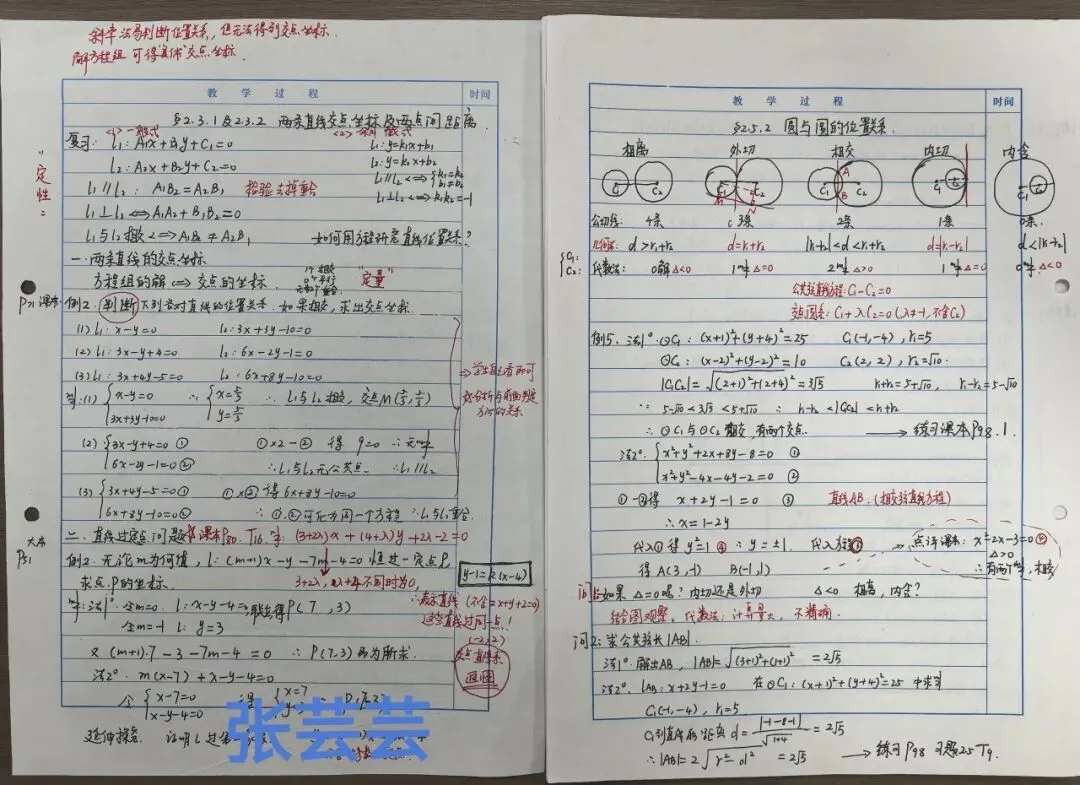 斜率法易判断位置关系,但无法得到交点坐标.
解方程组 可得"具体"交点坐标.
教 学 过 程 时间
§2.3.1及2.3.2 两条直线交点坐标及两点间距离
复习: <1>一般式 <2>斜截式
l₁: A₁x+B₁y+C₁=0 l₁: y=k₁x+b₁
l₂: A₂x+B₂y+C₂=0 l₂: y=k₂x+b₂
"定性"
l₁∥l₂: A₁B₂=A₂B₁ 检验去掉重合 l₁∥l₂⟺{k₁=k₂ b₁≠b₂
l₁⊥l₂⟺A₁A₂+B₁B₂=0 l₁⊥l₂⟺k₁k₂=-1
l₁与l₂相交⟺A₁B₂≠A₂B₁ 如何用方程研究直线位置关系?
一.两条直线的交点坐标
方程组的解⟺交点的坐标 "定量"
P71课本 例2.判断下列各对直线的位置关系.如果相交,求出交点坐标.
(1) l₁: x-y=0 l₂: 3x+3y-10=0
(2) l₁: 3x-y+4=0 l₂: 6x-2y-1=0
(3) l₁: 3x+4y-5=0 l₂: 6x+8y-10=0
解:(1) {x-y=0 3x+3y-10=0 ∴{x=5/3 y=5/3 ∴l₁与l₂相交,交点M(5/3,5/3)
(2) {3x-y+4=0 ① 6x-2y-1=0 ② ①×2-② 得 9=0 ∴无解
∴l₁与l₂无公共点 ∴l₁∥l₂
(3) {3x+4y-5=0 ① 6x+8y-10=0 ② ①×2得 6x+8y-10=0
∴①,②可化为同一个方程 ∴l₁与l₂重合
二.直线过定点问题 课本P80. T16. (3+2λ)x+(4+λ)y+2λ-2=0
大本P51
例2.无论m为何值,l:(m+1)x-y-7m-4=0恒过一定点P,
求点P的坐标. 3+2λ, 4+λ不同时为0,
y-1=k(x-4)
∴表示直线(不含x+y+2=0)
这些直线过同一点!
(-2,2)
交点直线系
解:法1°.令m=0. l:x-y-4=0 联立得P(7,3)
令m=-1 l: y=3
又(m+1)·7-3-7m-4=0 ∴P(7.3)即为所求.
法2°. m(x-7)+x-y-4=0
令{x-7=0 x-y-4=0 得{x=7
延伸探究.
张芸芸
教 学 过 程 时间
§2.5.2 圆与圆的位置关系.
相离 外切 相交 内切 内含
C₁ C₂ A B
公切线: 4条 3条 2条 1条 0条.
几何法: d>r₁+r₂ d=r₁+r₂ |r₁-r₂|<d<r₁+r₂ d=|r₁-r₂| d<|r₁-r₂|
代数法: 0解Δ<0 1解Δ=0 2解Δ>0 1解Δ=0 0解Δ<0
公共弦直线方程: C₁-C₂=0
交点圆系: C₁+λC₂=0(λ≠-1,不含C₂)
例5. 法1° ⊙C₁: (x+1)²+(y+4)²=25 C₁(-1,-4), r₁=5
⊙C₂: (x-2)²+(y-2)²=10 C₂(2,2), r₂=√10.
|C₁C₂|=√(2+1)²+(2+4)²=3√5 r₁+r₂=5+√10, r₁-r₂=5-√10
∵5-√10<3√5<5+√10 ∴r₁-r₂<|C₁C₂|<r₁+r₂
∴⊙C₁与⊙C₂相交,有两个交点. → 练习课本P98.1
法2°. {x²+y²+2x+8y-8=0 ①
x²+y²-4x-4y-2=0 ②
①-②得 x+2y-1=0 ③ 直线AB:(相交弦直线方程)
∴x=1-2y
代入①得 y²=1 ④ ∴y=±1. 代入方程③
得A(3,-1) B(-1,1)
点评课本: x²-2x-3=0④
Δ>0
∴有两个解,相交
问1:如果Δ=0呢?内切还是外切 Δ<0 相离,内含?
结合图观察. 代数法:计算量大,不精确.
问2:求公共弦长|AB|.
法1°.解出AB, |AB|=√(3+1)²+(1+1)²=2√5
法2°. lAB: x+2y-1=0 在⊙C₁:(x+1)²+(y+4)²=25中求解
C₁(-1,-4), r₁=5
C₁到直线的距离d=|-1-8-1|/√(1+4)=2√5
∴|AB|=2√(r²-d²)=2√5 → 练习P98 习题2.5T9.